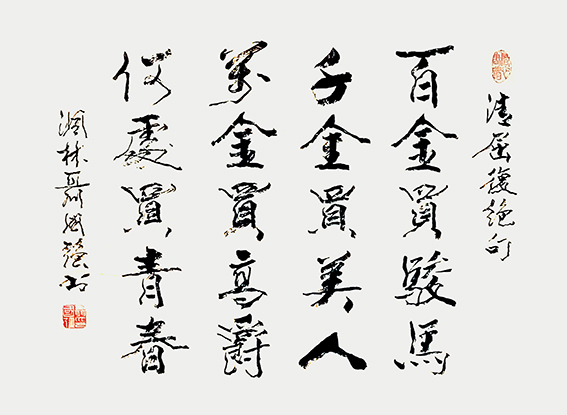 清屈復絕句
百金買駿馬
千金買美人
萬金買高爵
何處買青春